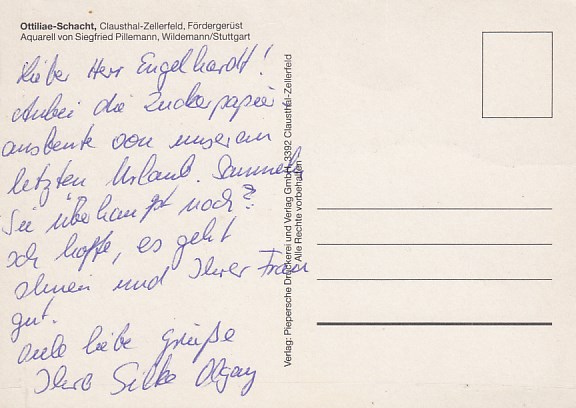 Ottiliae-Schacht, Clausthal-Zellerfeld, Fördergerüst
Aquarell von Siegfried Pillemann, Wildemann/Stuttgart
Lieber Herr Engelhardt!
Anbei die Zuckerpapier-
ausbeute von unserem
letzten Urlaub. Sammeln
Sie überhaupt noch?
Ich hoffe, es geht
Ihnen und Ihrer Frau
gut.
Viele liebe Grüße
Ihre Silke
Verlag: Piepersche Druckerei und Verlag GmbH, 3392 Clausthal-Zellerfeld
Alle Rechte vorbehalten